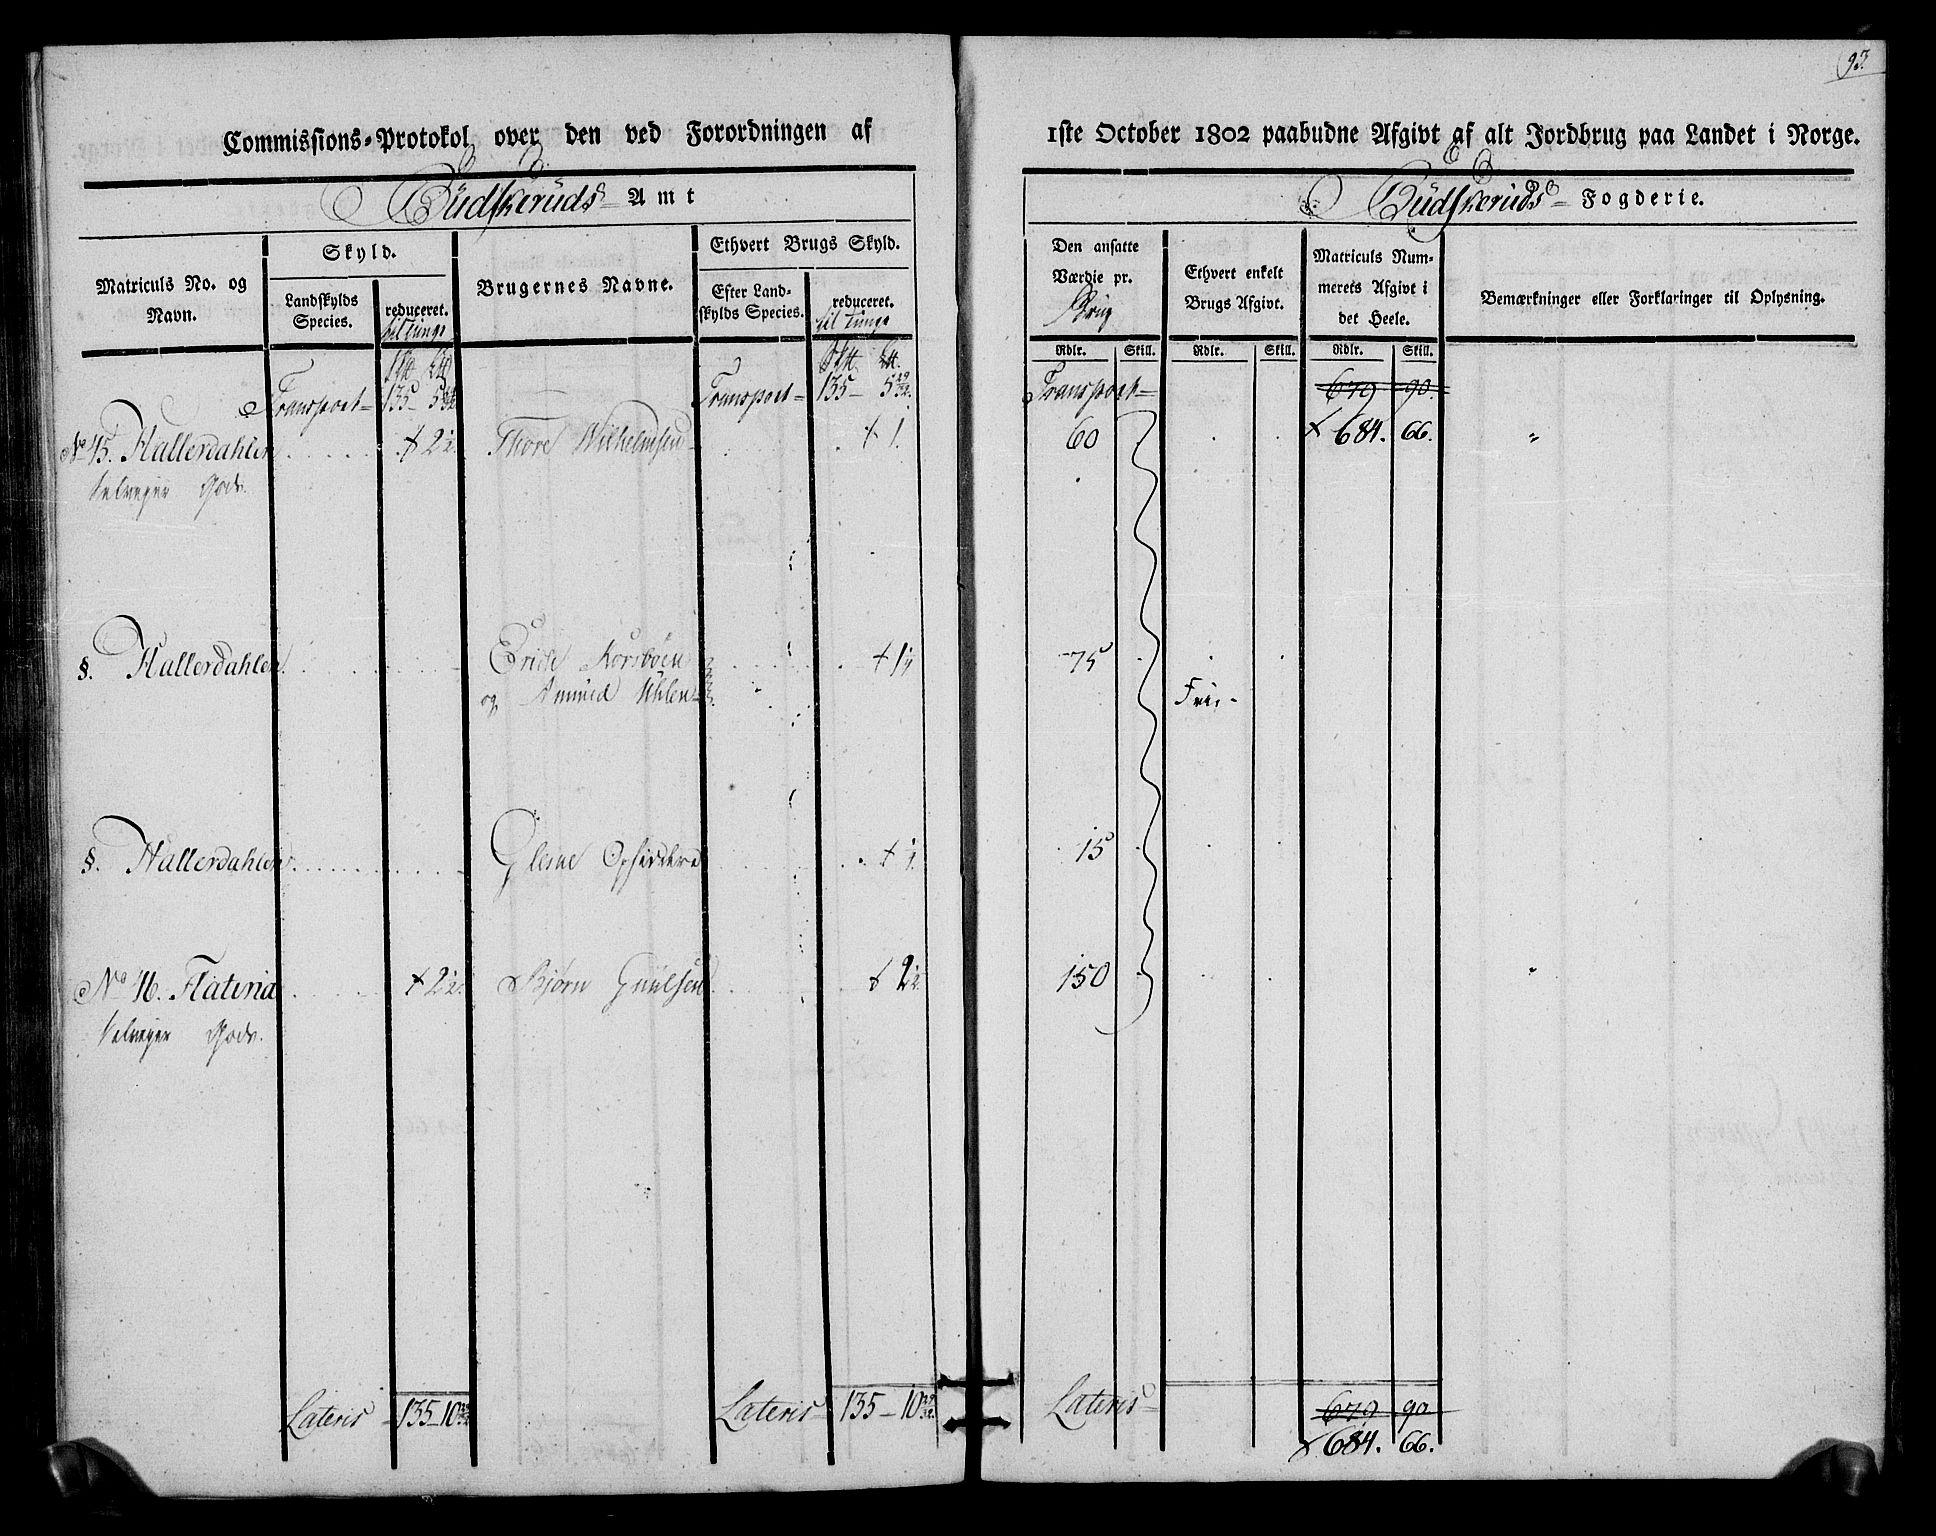 93.
Commissions-Protokol over den ved Forordningen af 1ste October 1802 paabudne Afgivt af alt Jordbrug paa Landet i Norge.
Budskeruds Amt
Budskeruds Fogderie.
Matriculs No. og Navn.
Skyld.
Landskylds Species.
reduceret.
til Tunge
Brugernes Navne.
Ethvert Brugs Skyld.
Efter Landskylds Species.
reduceret.
til Tunge
Den ansatte Værdie pr. Brug
Ethvert enkelt Brugs Afgivt.
Matriculs Nummerets Afgivt i det Heele.
Bemærkninger eller Forklaringer til Oplysning.
Rdlr. Skill. Rdlr. Skill. Rdlr. Skill.
Transport 135 - 5 29/32 Transport 135 - 5 29/32. Transport 679 90.
No 45. Hallerdahlen 2½ Thore Wilhelmsen 1. 60 684. 66. "
Selveyer Gods.
§. Hallerdahlen 1¼ 75
og Amund Uhlen
Frie
§. Hallerdahlen ¼. 15
No 46. 2½ Biørn 2½ 150 "
Selveyer Gods.
Lateris 135 - 10 29/32 Lateris 135 - 10 29/32. Lateris 679. 90.
684. 66.